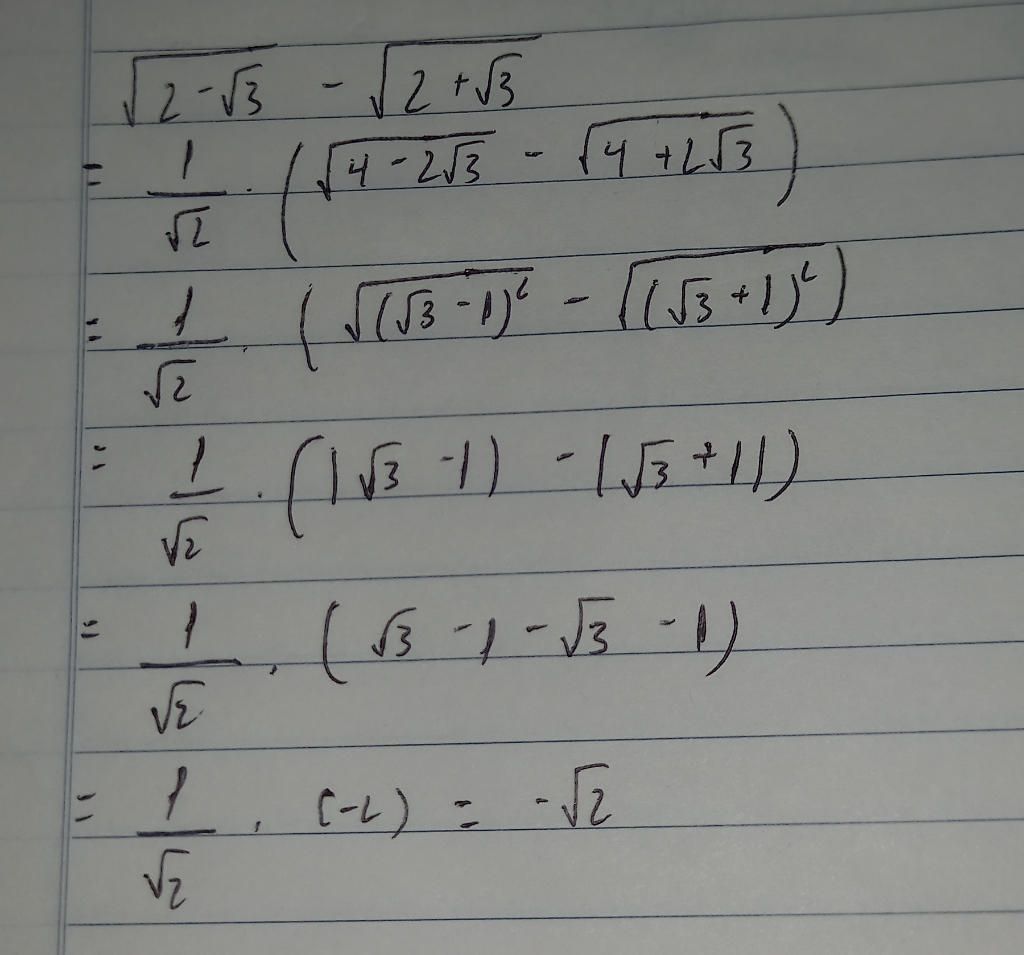 √(2-√3) - √(2+√3)
= 1/√2 · (√(4-2√3) - √(4+2√3))
= 1/√2 · (√((√3-1)²) - √((√3+1)²))
= 1/√2 · (|√3-1| - |√3+1|)
= 1/√2 · (√3-1-√3-1)
= 1/√2 · (-2) = -√2